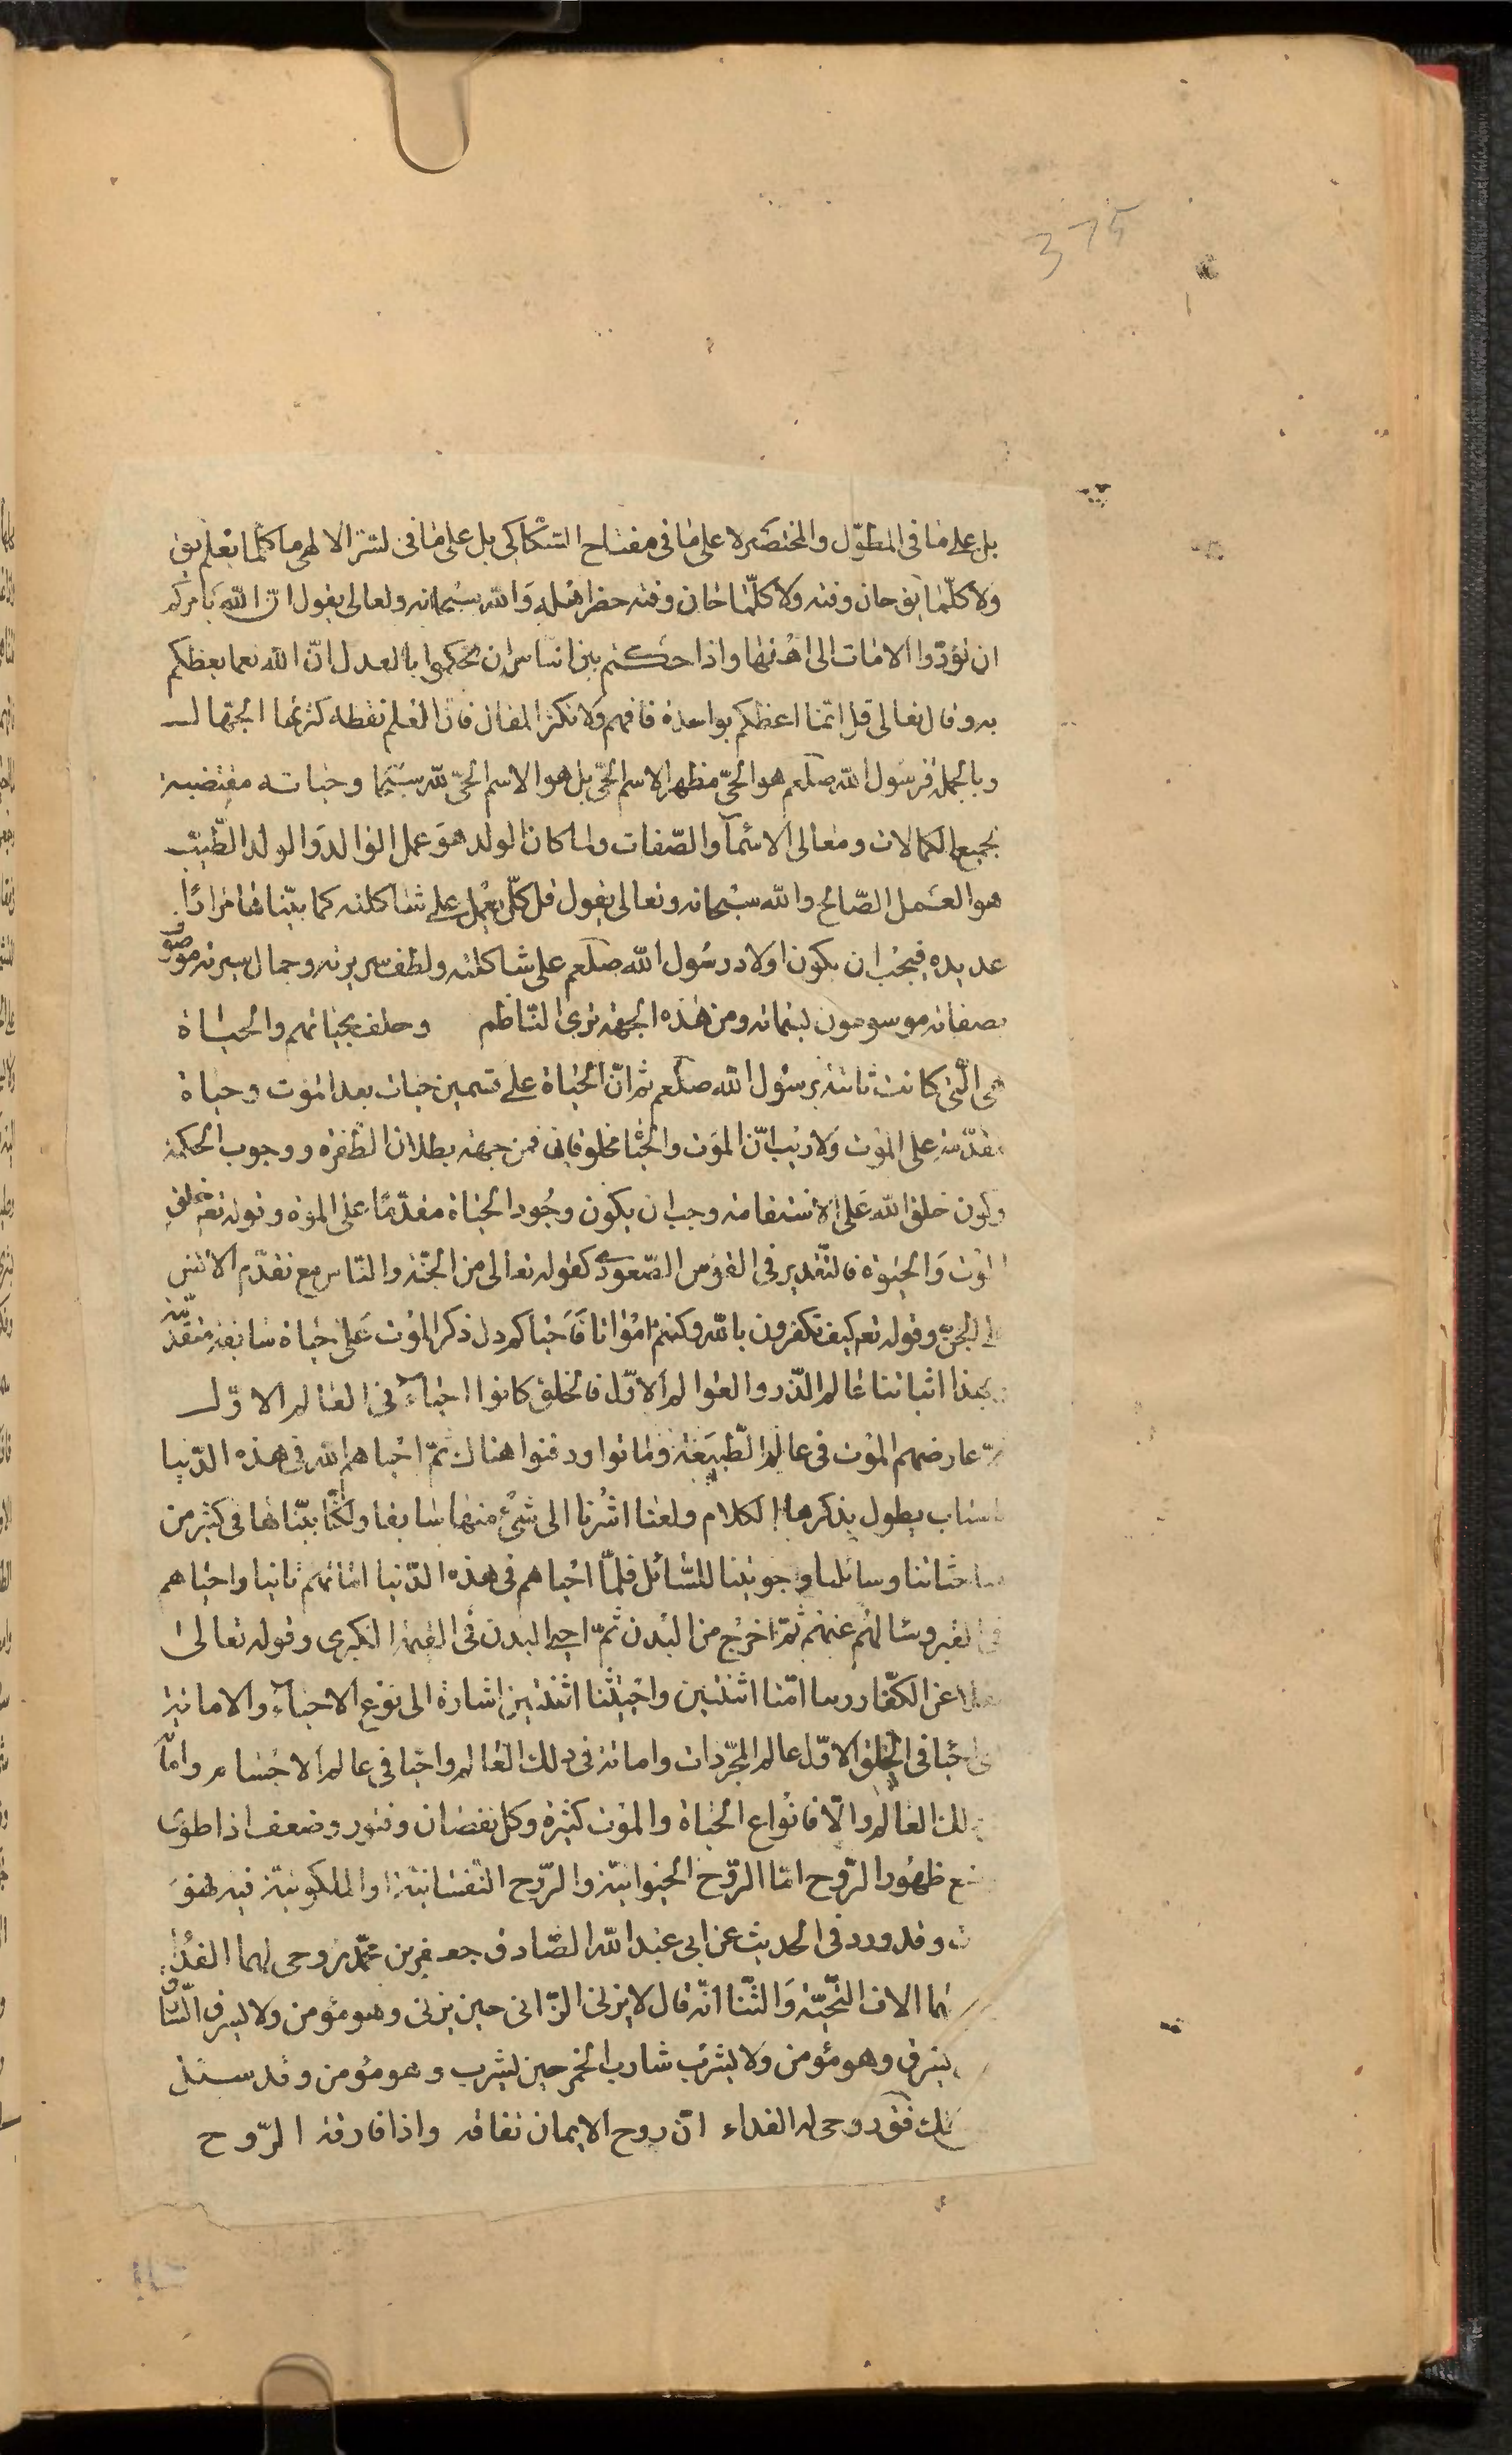 375
بل على ما فى المطوّل والمختصر لا على ما فى مفتاح السّكاكى بل على ما فى لسّر الالهى ما كلّما يعلم يق
ولا كلّما يق حان وقته ولا كلّما حان وقته حضر اهله والله سبحانه وتعالى يقول انّ الله يامركم
ان تؤدّوا الامانات الى اهلها واذا حكمتم بين الناس ان تحكموا بالعدل انّ الله نعما يعظكم
به وقال تعالى قل انّما اعظكم بواحدة فافهم ولا تكثر المقال فانّ العلم نقطه كثرها الجهّال
وبالجملة فرسول الله صلعم هو الحىّ مظهر الاسم الحىّ بل هو الاسم الحىّ لله سبحانه وحياته مقتضية
لجميع الكمالات ومعالى الاسماء والصّفات ولما كان الولد هو عمل الوالد والولد الطّيّب
هو العمل الصّالح والله سبحانه وتعالى يقول قل كلّ يعمل على شاكلته كما بيّناها مرارًا
عديده فيجب ان يكون اولاد رسول الله صلعم على شاكلته ولطف سريرته وجمال سيرته موصوفو
بصفاته موسومون بسماته ومن هذه الجهة ترى النّاظم وحلف بحياتهم والحياة
هى الّتى كانت ثابتة برسول الله صلعم ثم انّ الحياة على قسمين حيات بعد الموت وحياة
مقدّمة على الموت ولا ريب انّ الموت والحيا مخلوقان فمن جهة بطلان الطّفرة ووجوب الحكمة
وكون خلق الله على الاستقامة وجب ان يكون وجود الحياة مقدّمًا على الموة وقوله تعه خلق
الموت والحيوة فالتّقدير فى القوس الصّعودى كقوله تعالى من الجنّة والنّاس مع تقدّم الانس
على الجنّ وقوله تعه كيف تكفرون بالله وكنتم امواتا فاحياكم دل ذكر الموت على حياة سابقة متقدّمة
وبهذا اثباتنا عالم الذّر والعوالم الاوّل فالخلق كانوا احياء فى العالم الاوّل
ثمّ عارضهم الموت فى عالم الطّبيعة وماتوا ودفنوا هناك ثمّ احياهم الله فى هذه الدّنيا
باسباب يطول بذكرها الكلام ولعلنا اشرنا الى شئ منها سابقا ولكنّا بيّناها فى كثير من
مباحثاتنا وسائلنا واجوبتنا للسّائل فلمّا احياهم فى هذه الدّنيا اماتهم ثانيا واحياهم
فى القبر وسالهم عنهم ثمّ اخرج من البدن ثمّ احيى البدن فى القيمة الكبرى وقوله تعالى
نقلا عن الكفّار ربنا امّتنا اثنتين واحييتنا اثنتين اشارة الى نوع الاحياء والاماتة
احيا فى الخلق الاوّل عالم المجرّدات واماته فى ذلك العالم واحيا فى عالم الاجسام وامّا
ذلك العالم والّا فانواع الحياة والموت كثيرة وكل نقصان وفتور وضعف اذا طوى
منع ظهور الرّوح امّا الرّوح الحيوانيّة والرّوح النّفسانيّة او الملكوتيّة فيه فهو
ت وقد ورد فى الحديث عن ابى عبد الله الصّادق جعفر بن محمّد روحى لهما الفدا
لهما الاف التّحيّة والثّنا انّه قال لا يزنى الزّانى حين يزنى وهو مؤمن ولا يسرق السّارق
يسرق وهو مؤمن ولا يشرب شارب الخمر حين يشرب وهو مؤمن وقد سئل
ذلك فقه روحى له الفداء انّ روح الايمان تفارقه واذا فارقته الرّوح